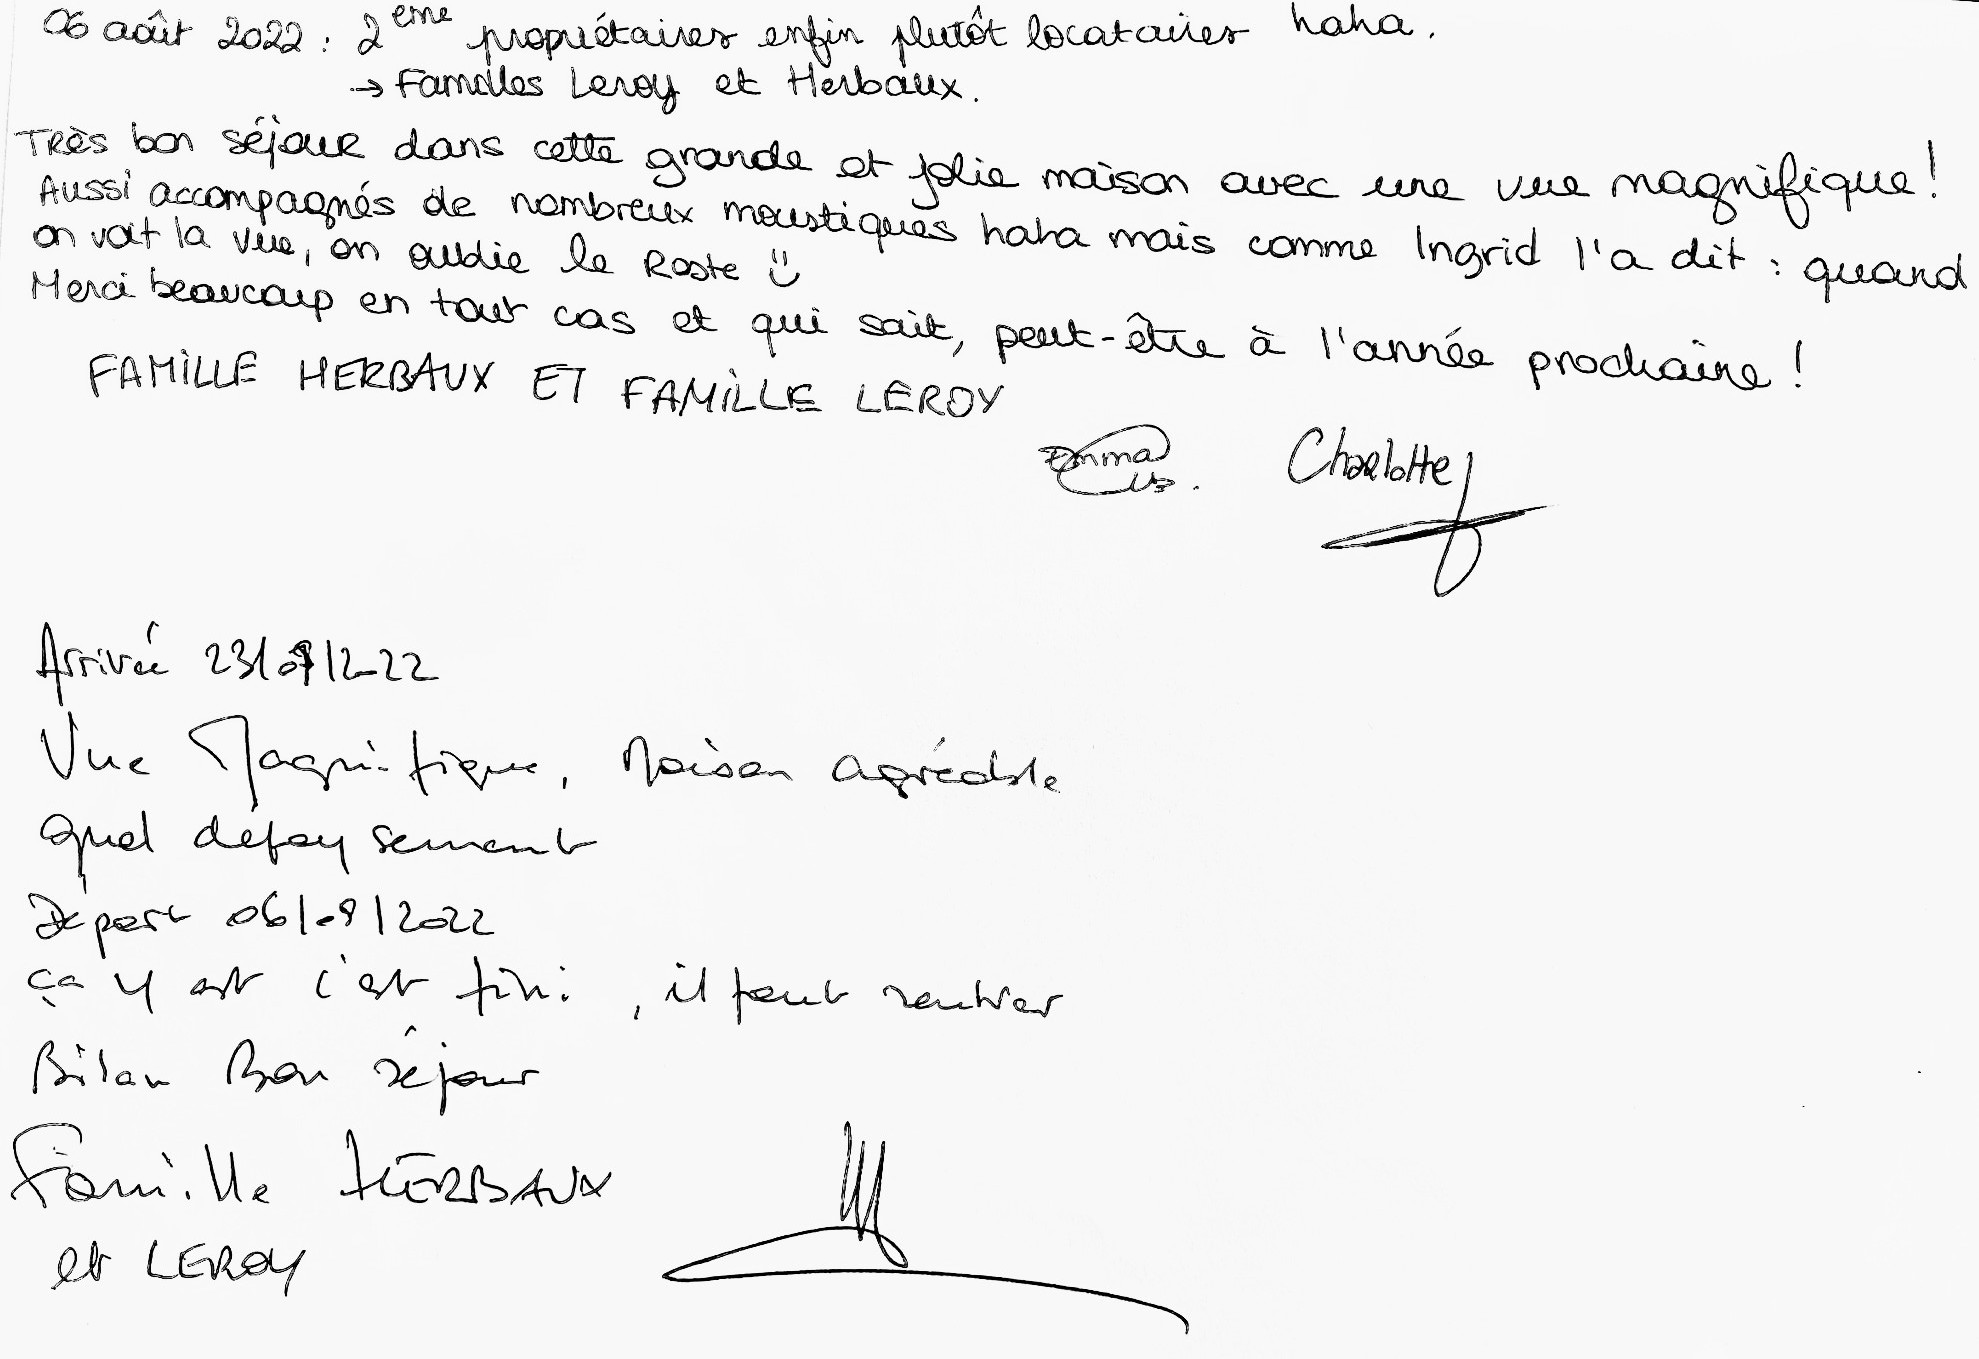 06 août 2022 : 2ème propriétaires enfin plutôt locataires haha.
→ Familles Leroy et Herbaux.
Très bon séjour dans cette grande et jolie maison avec une vue magnifique !
Aussi accompagnés de nombreux moustiques haha mais comme Ingrid l'a dit : quand
on voit la vue, on oublie le reste ☺
Merci beaucoup en tout cas et qui sait, peut-être à l'année prochaine !
FAMILLE HERBAUX ET FAMILLE LEROY
Emma
Charlotte
Arrivée 23/07/2022
Vue Magnifique, Maison agréable
quel dépaysement
Départ 06/08/2022
ça y est c'est fini, il faut rentrer
Bilan Bon séjour
Famille HERBAUX
et LEROY